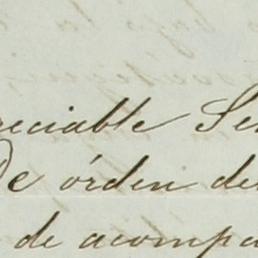 reciable Se
De órden del
de acompa